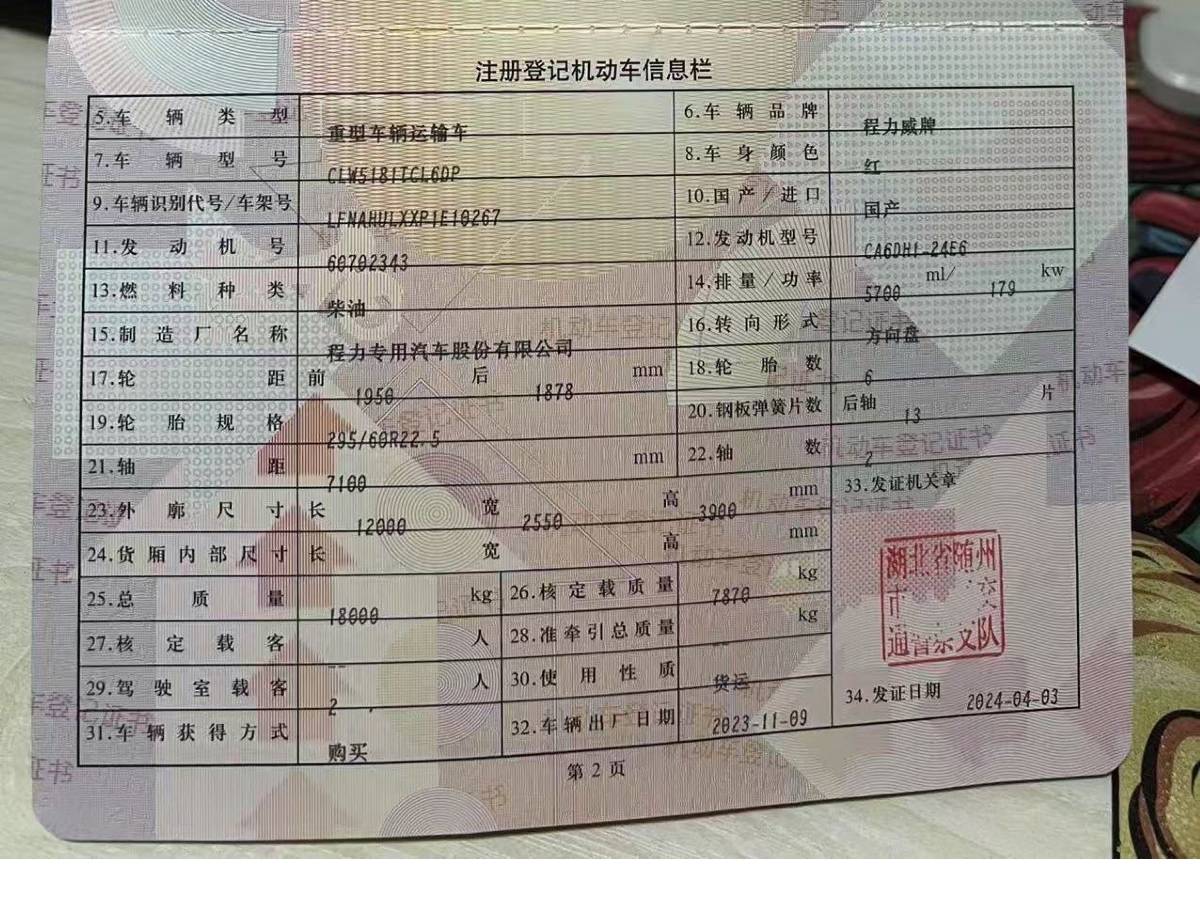 注册登记机动车信息栏
5.车辆类型 重型车辆运输车 6.车辆品牌 程力威牌
7.车辆型号 CLW5181TCL6DP 8.车身颜色 红
9.车辆识别代号/车架号 LFNAHULXXP1E10267 10.国产/进口 国产
11.发动机号 60702343 12.发动机型号 CA6DH1-24E6
13.燃料种类 柴油 14.排量/功率 5700 ml/ 179 kw
15.制造厂名称 程力专用汽车股份有限公司 16.转向形式 方向盘
17.轮距 前 1950 后 1878 mm 18.轮胎数 6
19.轮胎规格 295/60R22.5 20.钢板弹簧片数 后轴 13 片
21.轴距 7100 mm 22.轴数 2
23.外廓尺寸 长 12000 宽 2550 高 3900 mm 33.发证机关章
24.货厢内部尺寸 长 宽 高 mm
25.总质量 18000 kg 26.核定载质量 7870 kg
27.核定载客 -- 人 28.准牵引总质量 -- kg
29.驾驶室载客 2 人 30.使用性质 货运
31.车辆获得方式 购买 32.车辆出厂日期 2023-11-09 34.发证日期 2024-04-03
湖北省随州
市
通警察支队
第2页